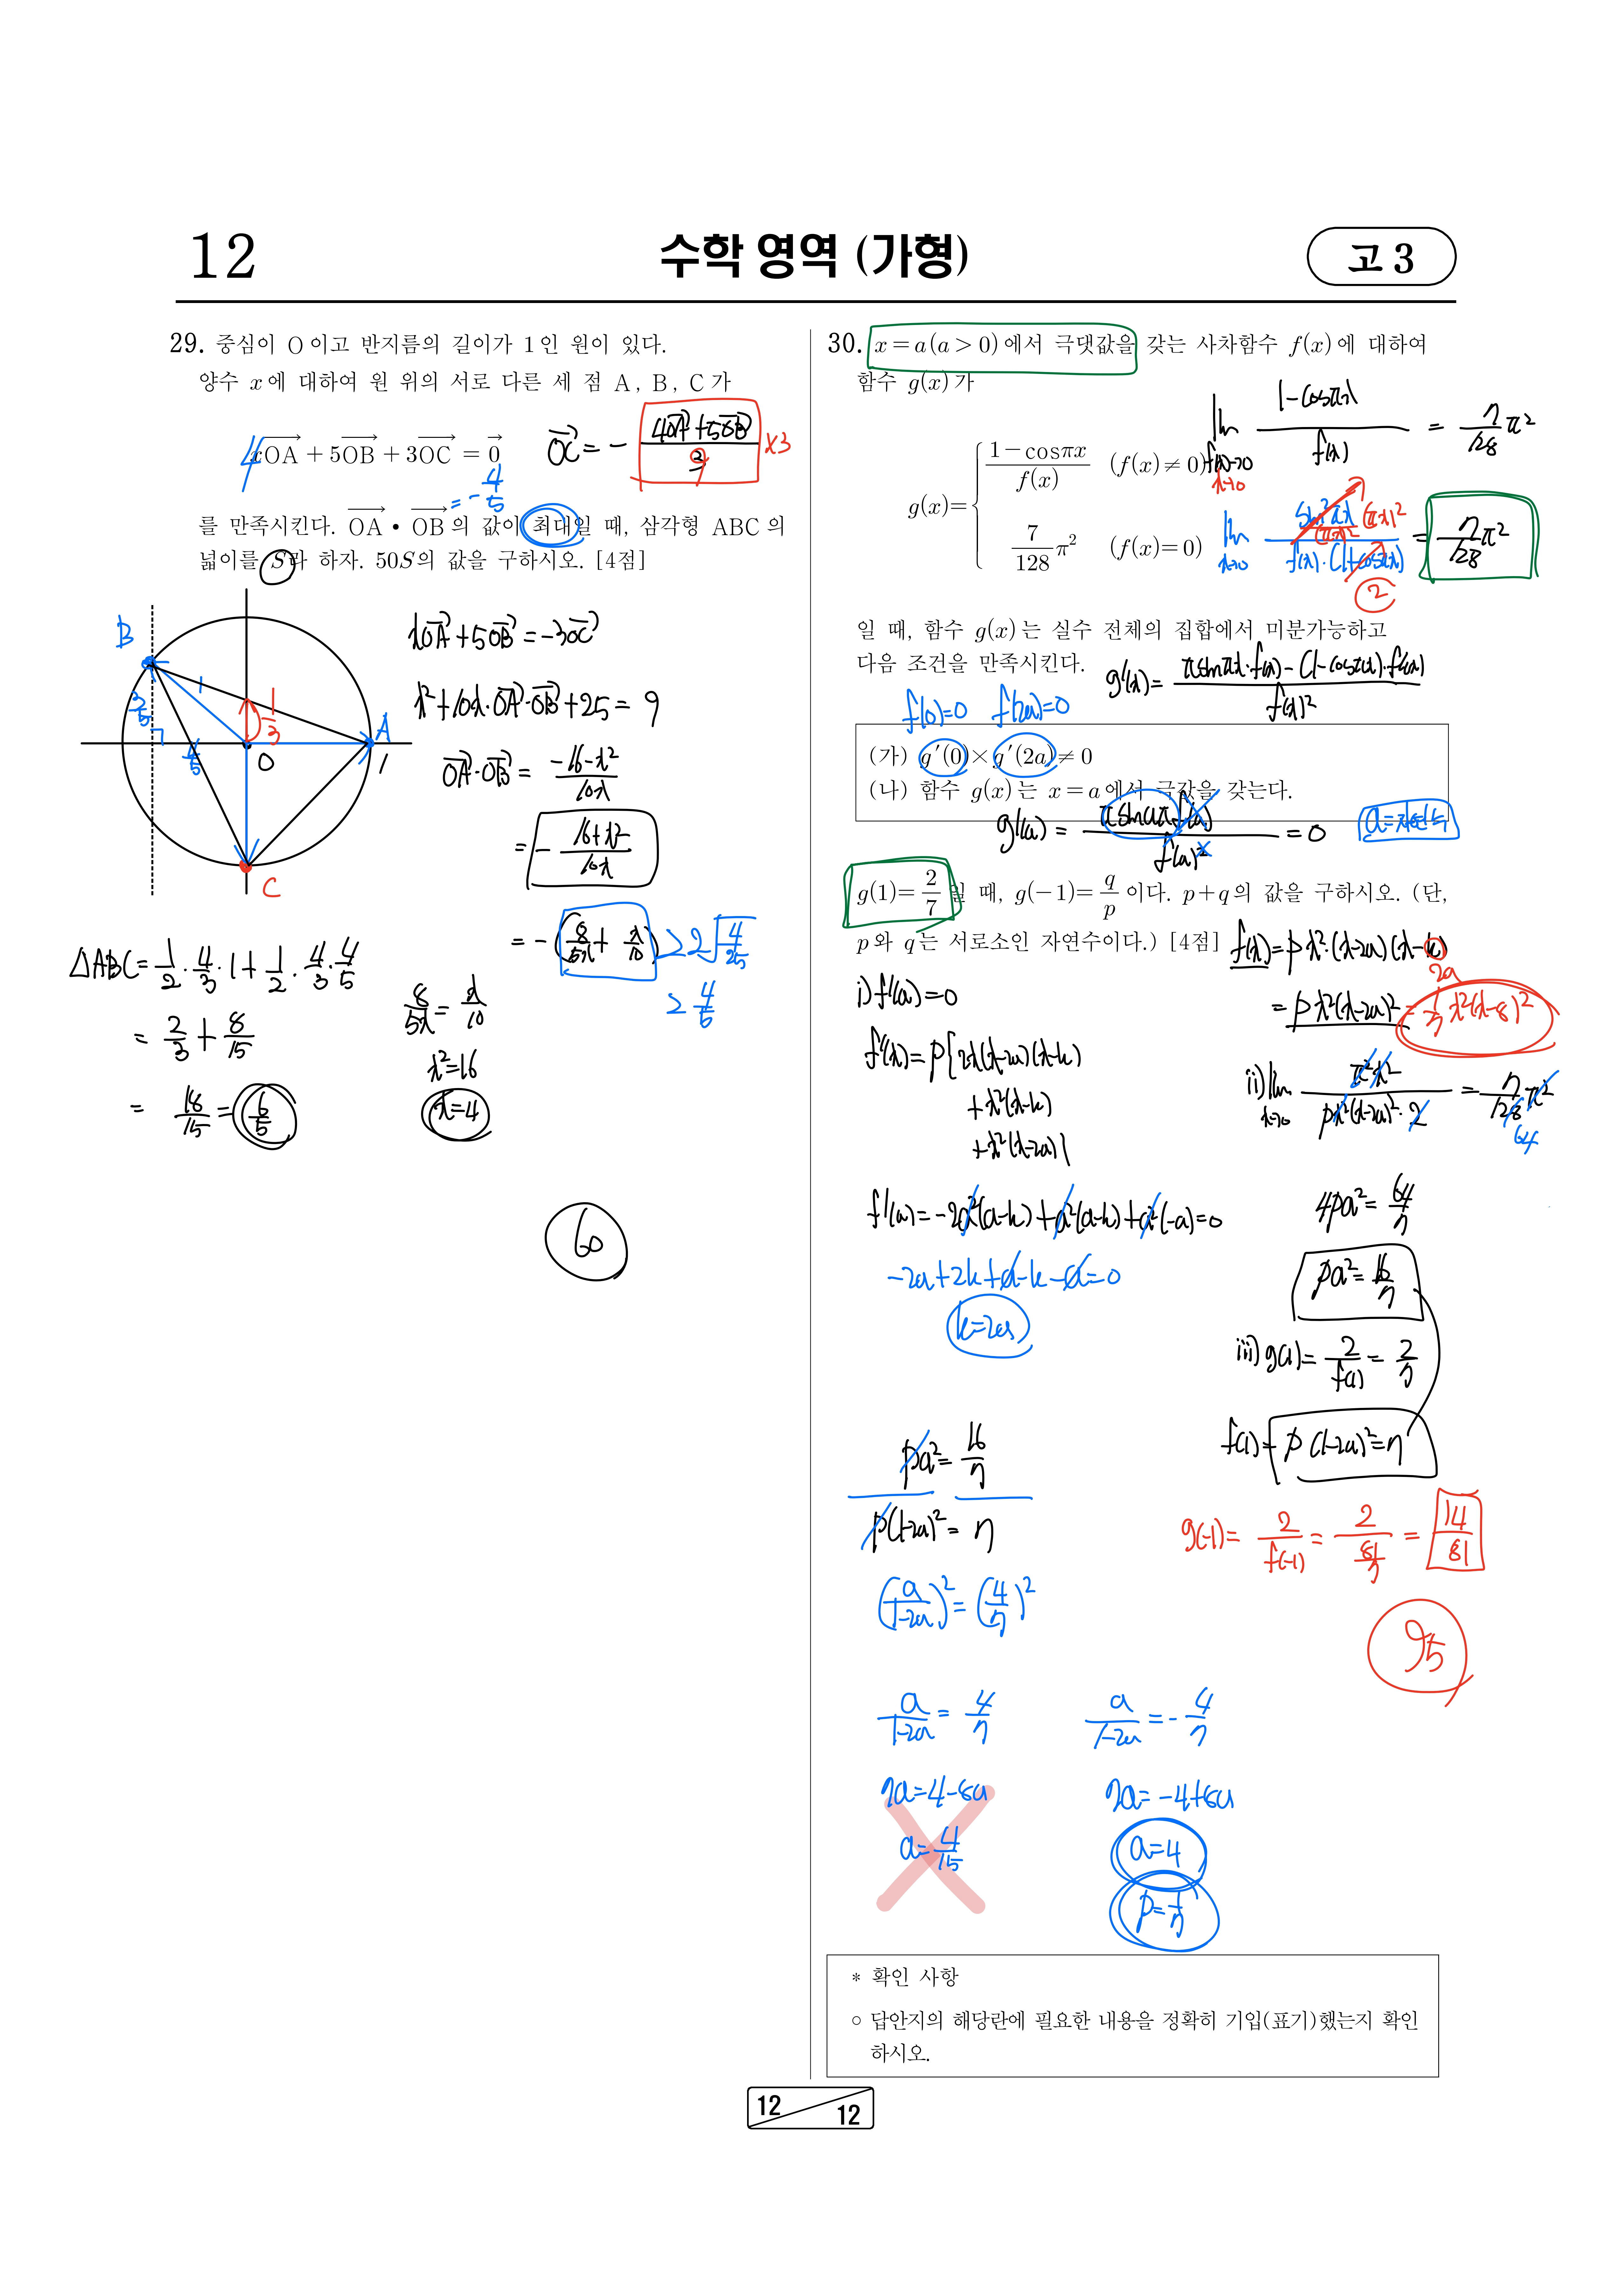 12
수학 영역 (가형)
고 3
29. 중심이 O이고 반지름의 길이가 1인 원이 있다.
양수 x에 대하여 원 위의 서로 다른 세 점 A, B, C가
xOA + 5OB + 3OC = 0
4
= -4/5
OC = - (4OA + 5OB)/9 ×3
를 만족시킨다. OA • OB의 값이 최대일 때, 삼각형 ABC의
넓이를 S라 하자. 50S의 값을 구하시오. [4점]
B
A
O
C
1
1
1/3
3/5
4/5
xOA + 5OB = -3OC
x² + 10x·OA·OB + 25 = 9
OA·OB = (-16-x²)/10x
= - (16+x²)/10x
= -(8/5x + x/10) ≥ 2√(4/25)
≥ 4/5
8/5x = x/10
x²=16
x=4
△ABC = 1/2 · 4/3 · 1 + 1/2 · 4/3 · 4/5
= 2/3 + 8/15
= 18/15 = 6/5
60
30. x = a (a > 0)에서 극댓값을 갖는 사차함수 f(x)에 대하여
함수 g(x)가
g(x) = { (1-cosπx)/f(x) (f(x) ≠ 0)
7/128 π² (f(x) = 0)
lim f(x)→0 x→0 (1-cosπx)/f(x) = 7/128 π²
lim x→0 sin²πx/(πx)² (πx)² / f(x)·(1+cosπx) = 7/128 π²
2
일 때, 함수 g(x)는 실수 전체의 집합에서 미분가능하고
다음 조건을 만족시킨다.
g'(x) = (πsinπx·f(x) - (1-cosπx)·f'(x))/f(x)²
f(0)=0 f(2a)=0
(가) g′(0) × g′(2a) ≠ 0
(나) 함수 g(x)는 x = a에서 극값을 갖는다.
g'(a) = πsinaπ f(a) / f(a)² = 0
a=자연수
g(1) = 2/7 일 때, g(-1) = q/p 이다. p+q의 값을 구하시오. (단,
p와 q는 서로소인 자연수이다.) [4점]
f(x) = px²·(x-2a)(x-k)
2a
= px²(x-2a)² = 1/7 x²(x-8)²
i) f'(a)=0
f'(x) = p{2x(x-2a)(x-k)
+x²(x-k)
+x²(x-2a)}
f'(a) = -2a²(a-k) + a²(a-k) + a²(-a) = 0
-2a+2k+a-k-a=0
k=2a
ii) lim x→0 π²x² / px²(x-2a)²·2 = 7/128 π²
64
4pa² = 64/7
pa² = 16/7
iii) g(1) = 2/f(1) = 2/7
f(1) = p(1-2a)² = 7
pa² = 16/7
p(1-2a)² = 7
(a/(1-2a))² = (4/7)²
a/(1-2a) = 4/7
7a=4-8a
a=4/15
a/(1-2a) = -4/7
7a=-4+8a
a=4
p=1/7
g(-1) = 2/f(-1) = 2/(81/7) = 14/81
95
* 확인 사항
○ 답안지의 해당란에 필요한 내용을 정확히 기입(표기)했는지 확인
하시오.
12
12